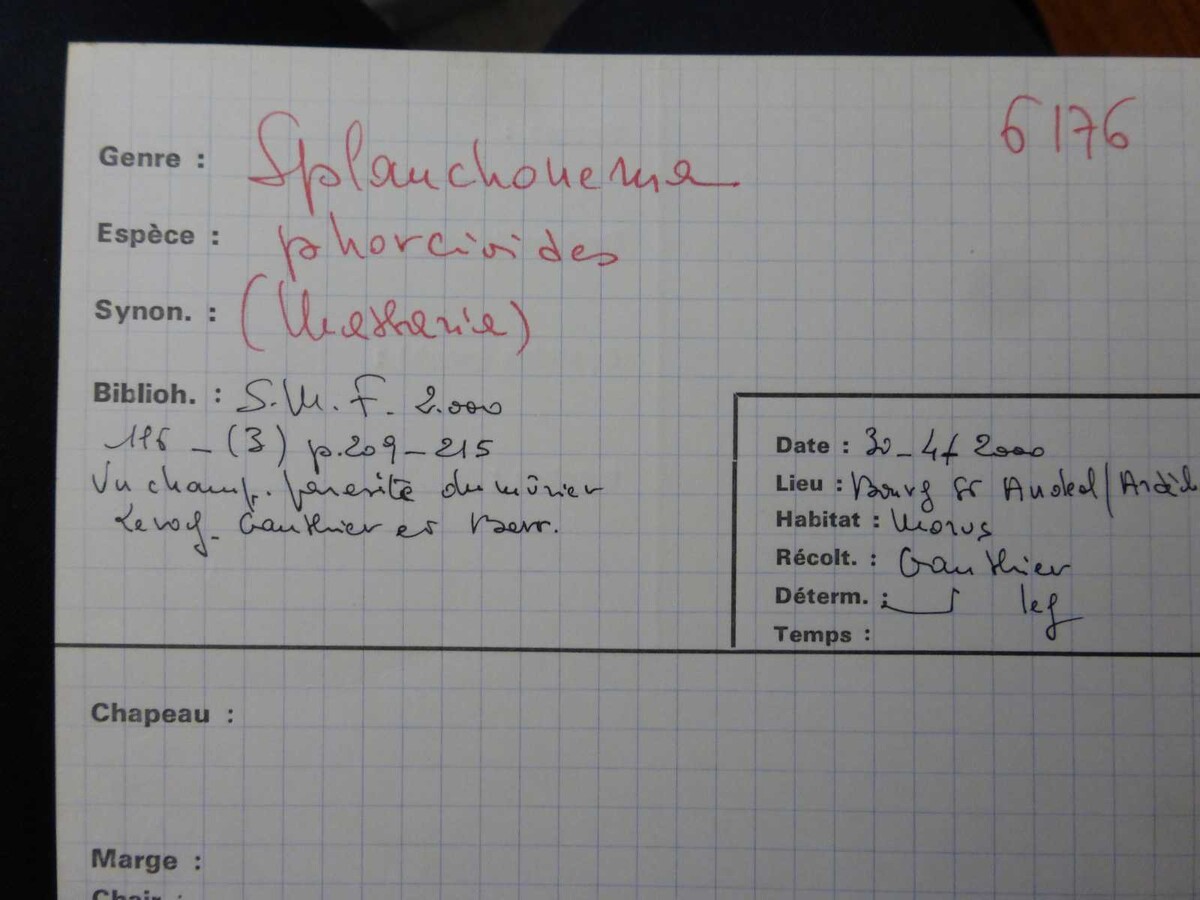 6176
Genre : Splanchonema
Espèce : phorcioides
Synon. : (Massaria)
Biblioh. : S.M.F. 2.000
116 - (3) p.209-215
Un champ. parasite du mûrier
Leroy. Gauthier et Berr.
Date : 30-4f 2000
Lieu : Bourg St Andeol/Ardèch
Habitat : Morus
Récolt. : Gauthier
Déterm. : leg
Temps :
Chapeau :
Marge :
Chair :